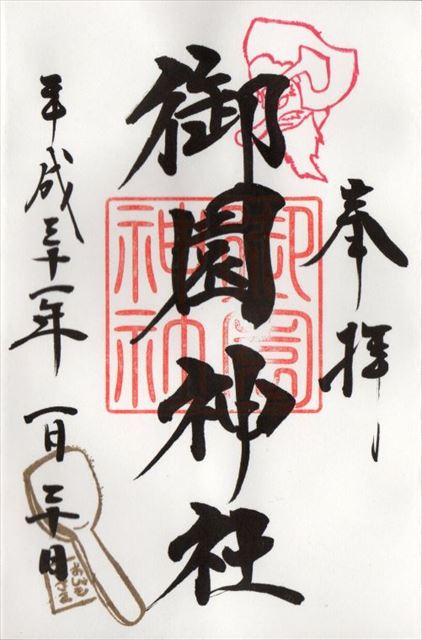 奉拝
御園神社
御園
神社
平成三十一年一月二十日